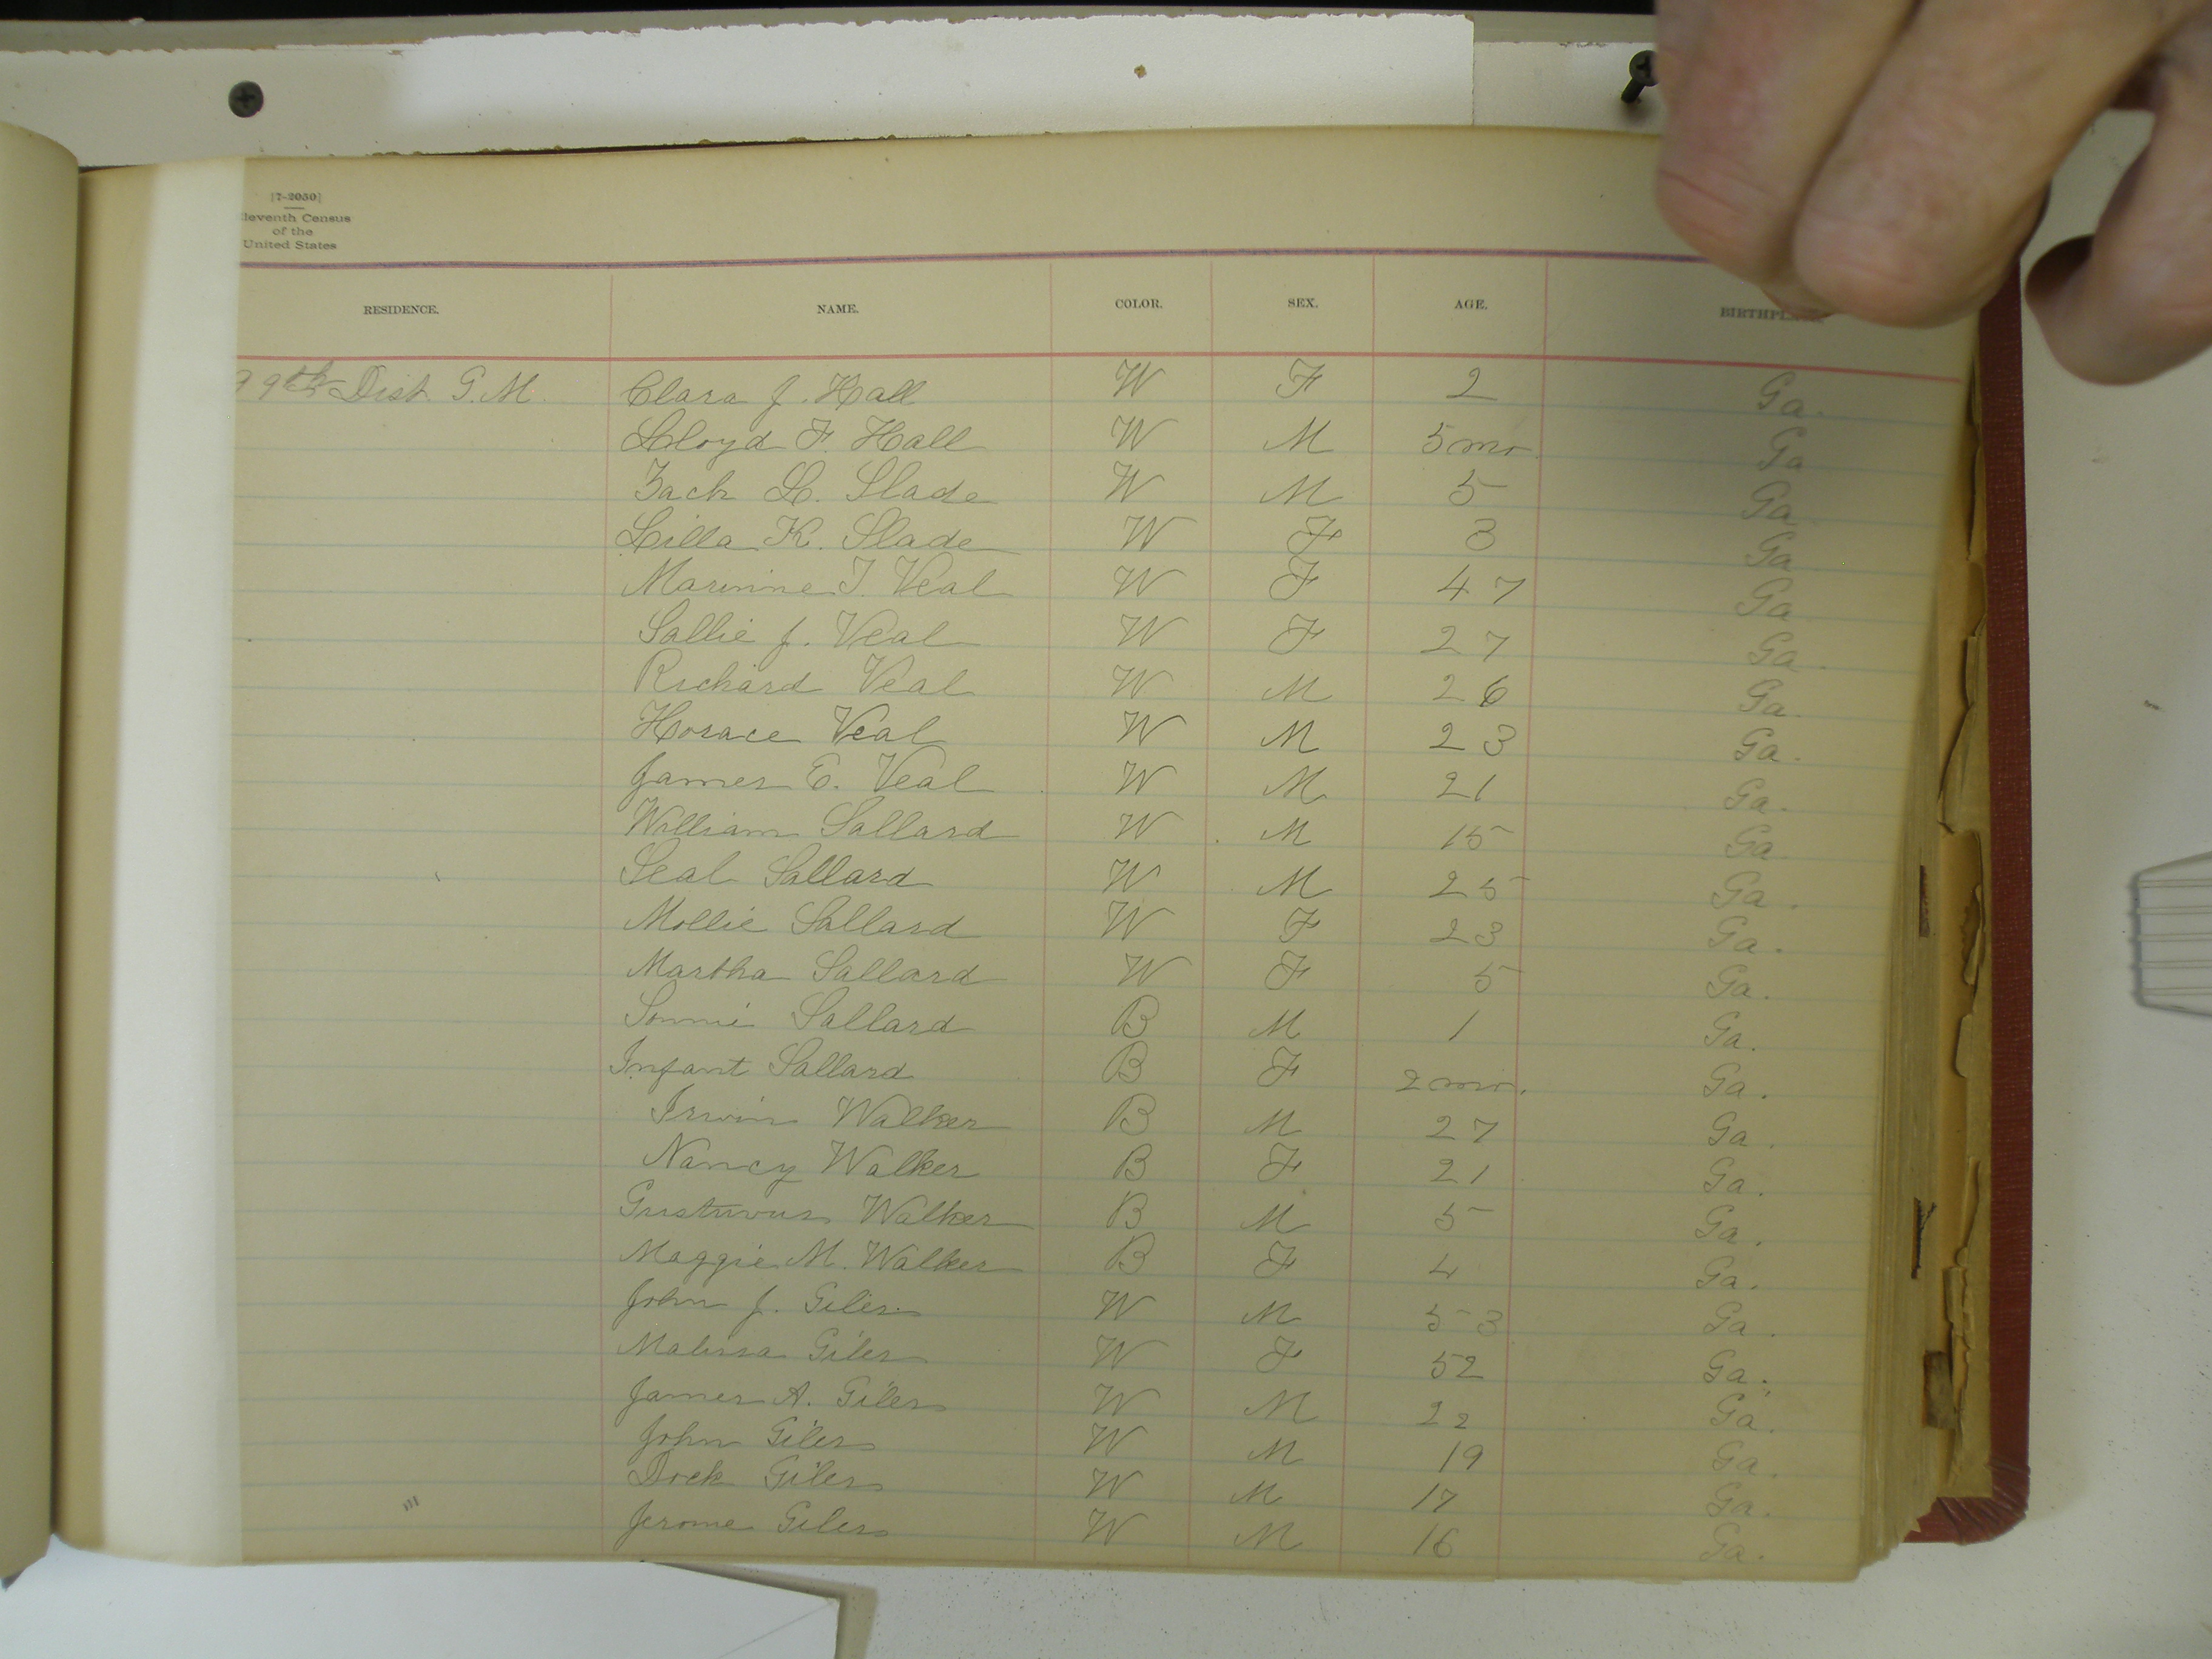 [7-2050]
leventh Census
of the
United States
RESIDENCE. NAME. COLOR. SEX. AGE.
99th Dist. G. M. Clara J. Hall W F 2 Ga.
Lloyd F. Hall W M 5 mo. Ga
Zach L. Slade W M 5 Ga
Lilla K. Slade W F 3 Ga
T. Veal W F 47 Ga
Sallie J. Veal W F 27 Ga.
Richard Veal W M 26 Ga.
Horace Veal W M 23 Ga.
James E. Veal W M 21 Ga.
William Sallard W M 15 Ga
Seal Sallard W M 25 Ga.
Mollie Sallard W F 23 Ga.
Martha Sallard W F 5 Ga.
Sonnie Sallard B M 1 Ga.
Infant Sallard B F 2 mo. Ga.
Irwin Walker B M 27 Ga.
Nancy Walker B F 21 Ga.
Gustuvus Walker B M 5 Ga.
Maggie M. Walker B F 4 Ga.
John J. Giles W M 53 Ga.
Malissa Giles W F 52 Ga.
James A. Giles W M 22 Ga.
John Giles W M 19 Ga.
Dock Giles W M 17 Ga.
Jerome Giles W M 16 Ga.